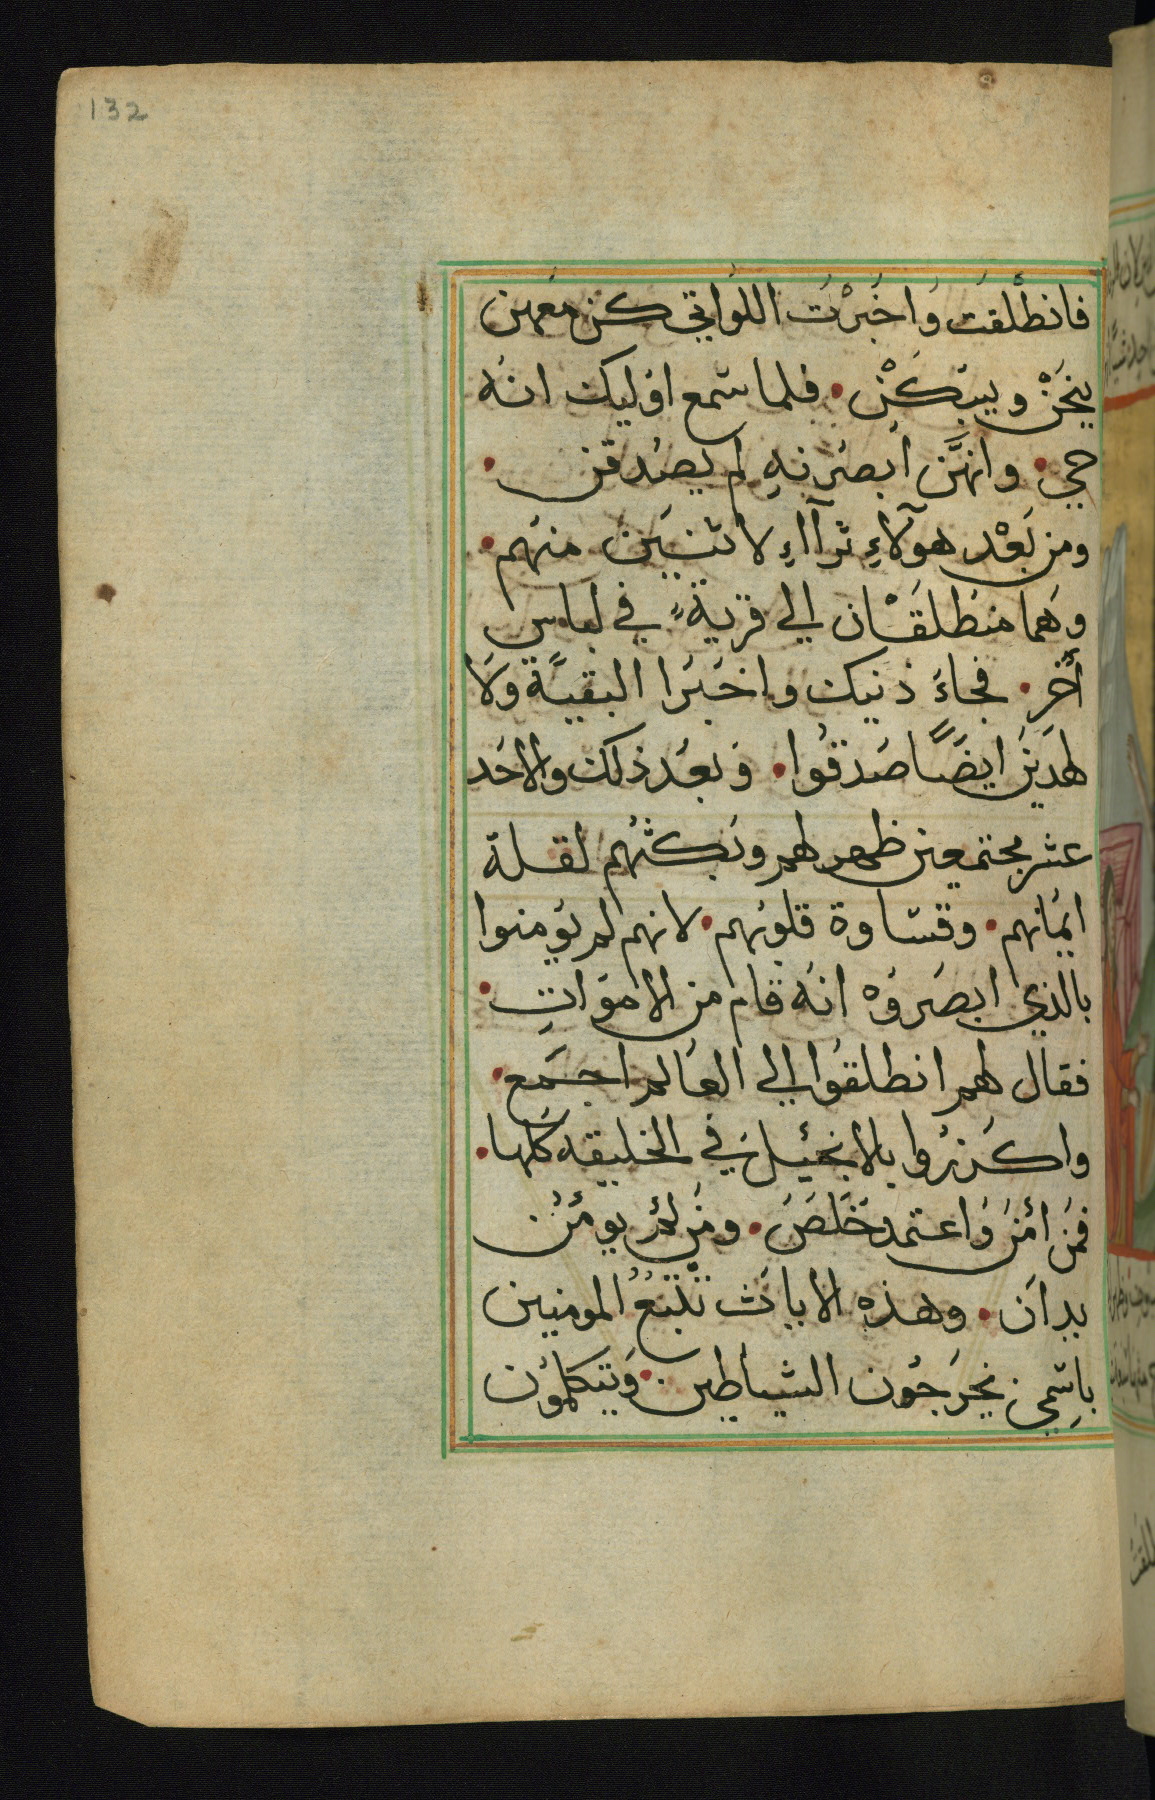 132
فانطلقت واخبرت اللواتي كن معهن
ينحن ويبكن. فلما سمع اوليك انه
حي. وانهن ابصرنه لم يصدقن.
ومن بعد هولاء ترآاء لاثنين منهم.
وهما منطلقان الي قرية في لباس
أخر. فجاء ذنيك واخبرا البقية ولا
لهدين ايضًا صدقوا. وبعد ذلك والاحد
عشر مجتمعين ظهر لهم وبكثهم لقلة
ايمانهم. وقساوة قلوبهم. لانهم لم يومنوا
بالذي ابصروه انه قام من الاموات.
فقال لهم انطلقوا الي العالم اجمع.
واكرزوا بالانجيل في الخليقه كلها.
فمن أمن واعتمد خلص. ومن لم يومن
يدان. وهذه الايات تتبع المومنين
باسمي. يخرجون الشياطين. ويتكلمون